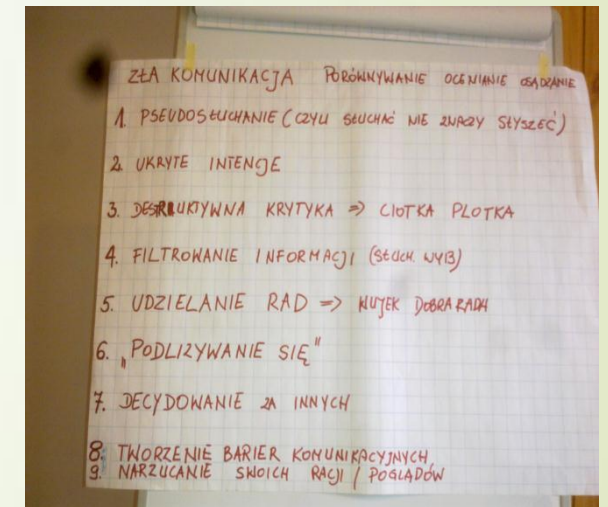 ZŁA KOMUNIKACJA PORÓWNYWANIE OCENIANIE OSĄDZANIE
1. PSEUDOSŁUCHANIE (CZYLI SŁUCHAĆ NIE ZNACZY SŁYSZEĆ)
2. UKRYTE INTENCJE
3. DESTRUKTYWNA KRYTYKA => CIOTKA PLOTKA
4. FILTROWANIE INFORMACJI (SŁUCH. WYB)
5. UDZIELANIE RAD => WUJEK DOBRA RADA
6. „PODLIZYWANIE SIĘ"
7. DECYDOWANIE ZA INNYCH
8. TWORZENIE BARIER KOMUNIKACYJNYCH
9. NARZUCANIE SWOICH RACJI / POGLĄDÓW